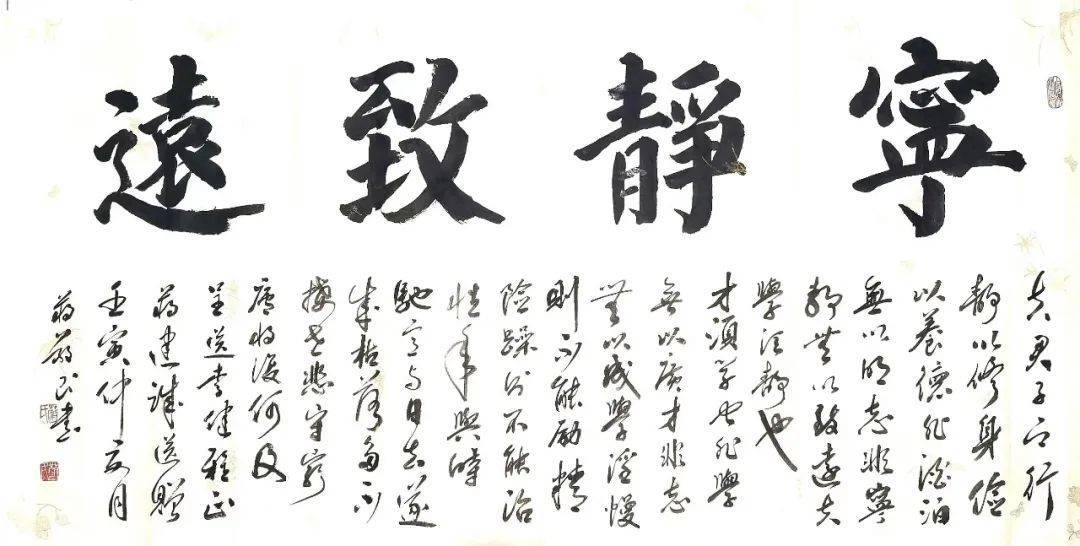 寧靜致遠
夫君子之行
靜以修身儉
以養德非澹泊
無以明志非寧
靜無以致遠夫
學須靜也
才須學也非學
無以廣才非志
無以成學淫慢
則不能勵精
險躁則不能治
性年與時
馳意與日去遂
成枯落多不
接世悲守窮
廬將復何及
呈送李健雅正
蔣建誠送贈
壬寅仲夏月
蔣民書